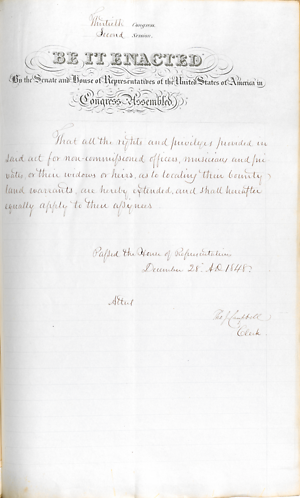 Thirtieth Congress
Second Session
BE IT ENACTED
By the Senate and House of Representatives of the United States of America in
Congress Assembled
That all the rights and privileges provided in
said act for non-commissioned officers, musicians and pri-
vates, or their widows or heirs, as to locating their bounty
land warrants, are hereby extended, and shall hereafter
equally apply to their assignees.
Passed the House of Representatives
December 28th A.D. 1848.
Attest
Campbell
Clerk